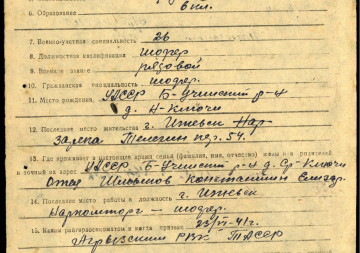 6 кл.
6. Образование
7. Военно-учетная специальность 26
8. Должностная квалификация шофер
9. Военное звание рядовой
10. Гражданская специальность шофер.
11. Место рождения УАССР Б-Учинский р-н
д. Н-Ключи
12. Последнее место жительства г. Ижевск
пер. 54.
13. Где проживает в настоящее время семья (фамилия, имя, отчество) жены или родителей
и точный их адрес УАССР Б-Учинский р-н д. Ср-Ключи
Отец Константин
14. Последнее место работы и должность г. Ижевск
Наркомторг — шофер.
15. Каким райвоенкоматом и когда призван 23/VI-41г.
Агрызским РВК ТАССР